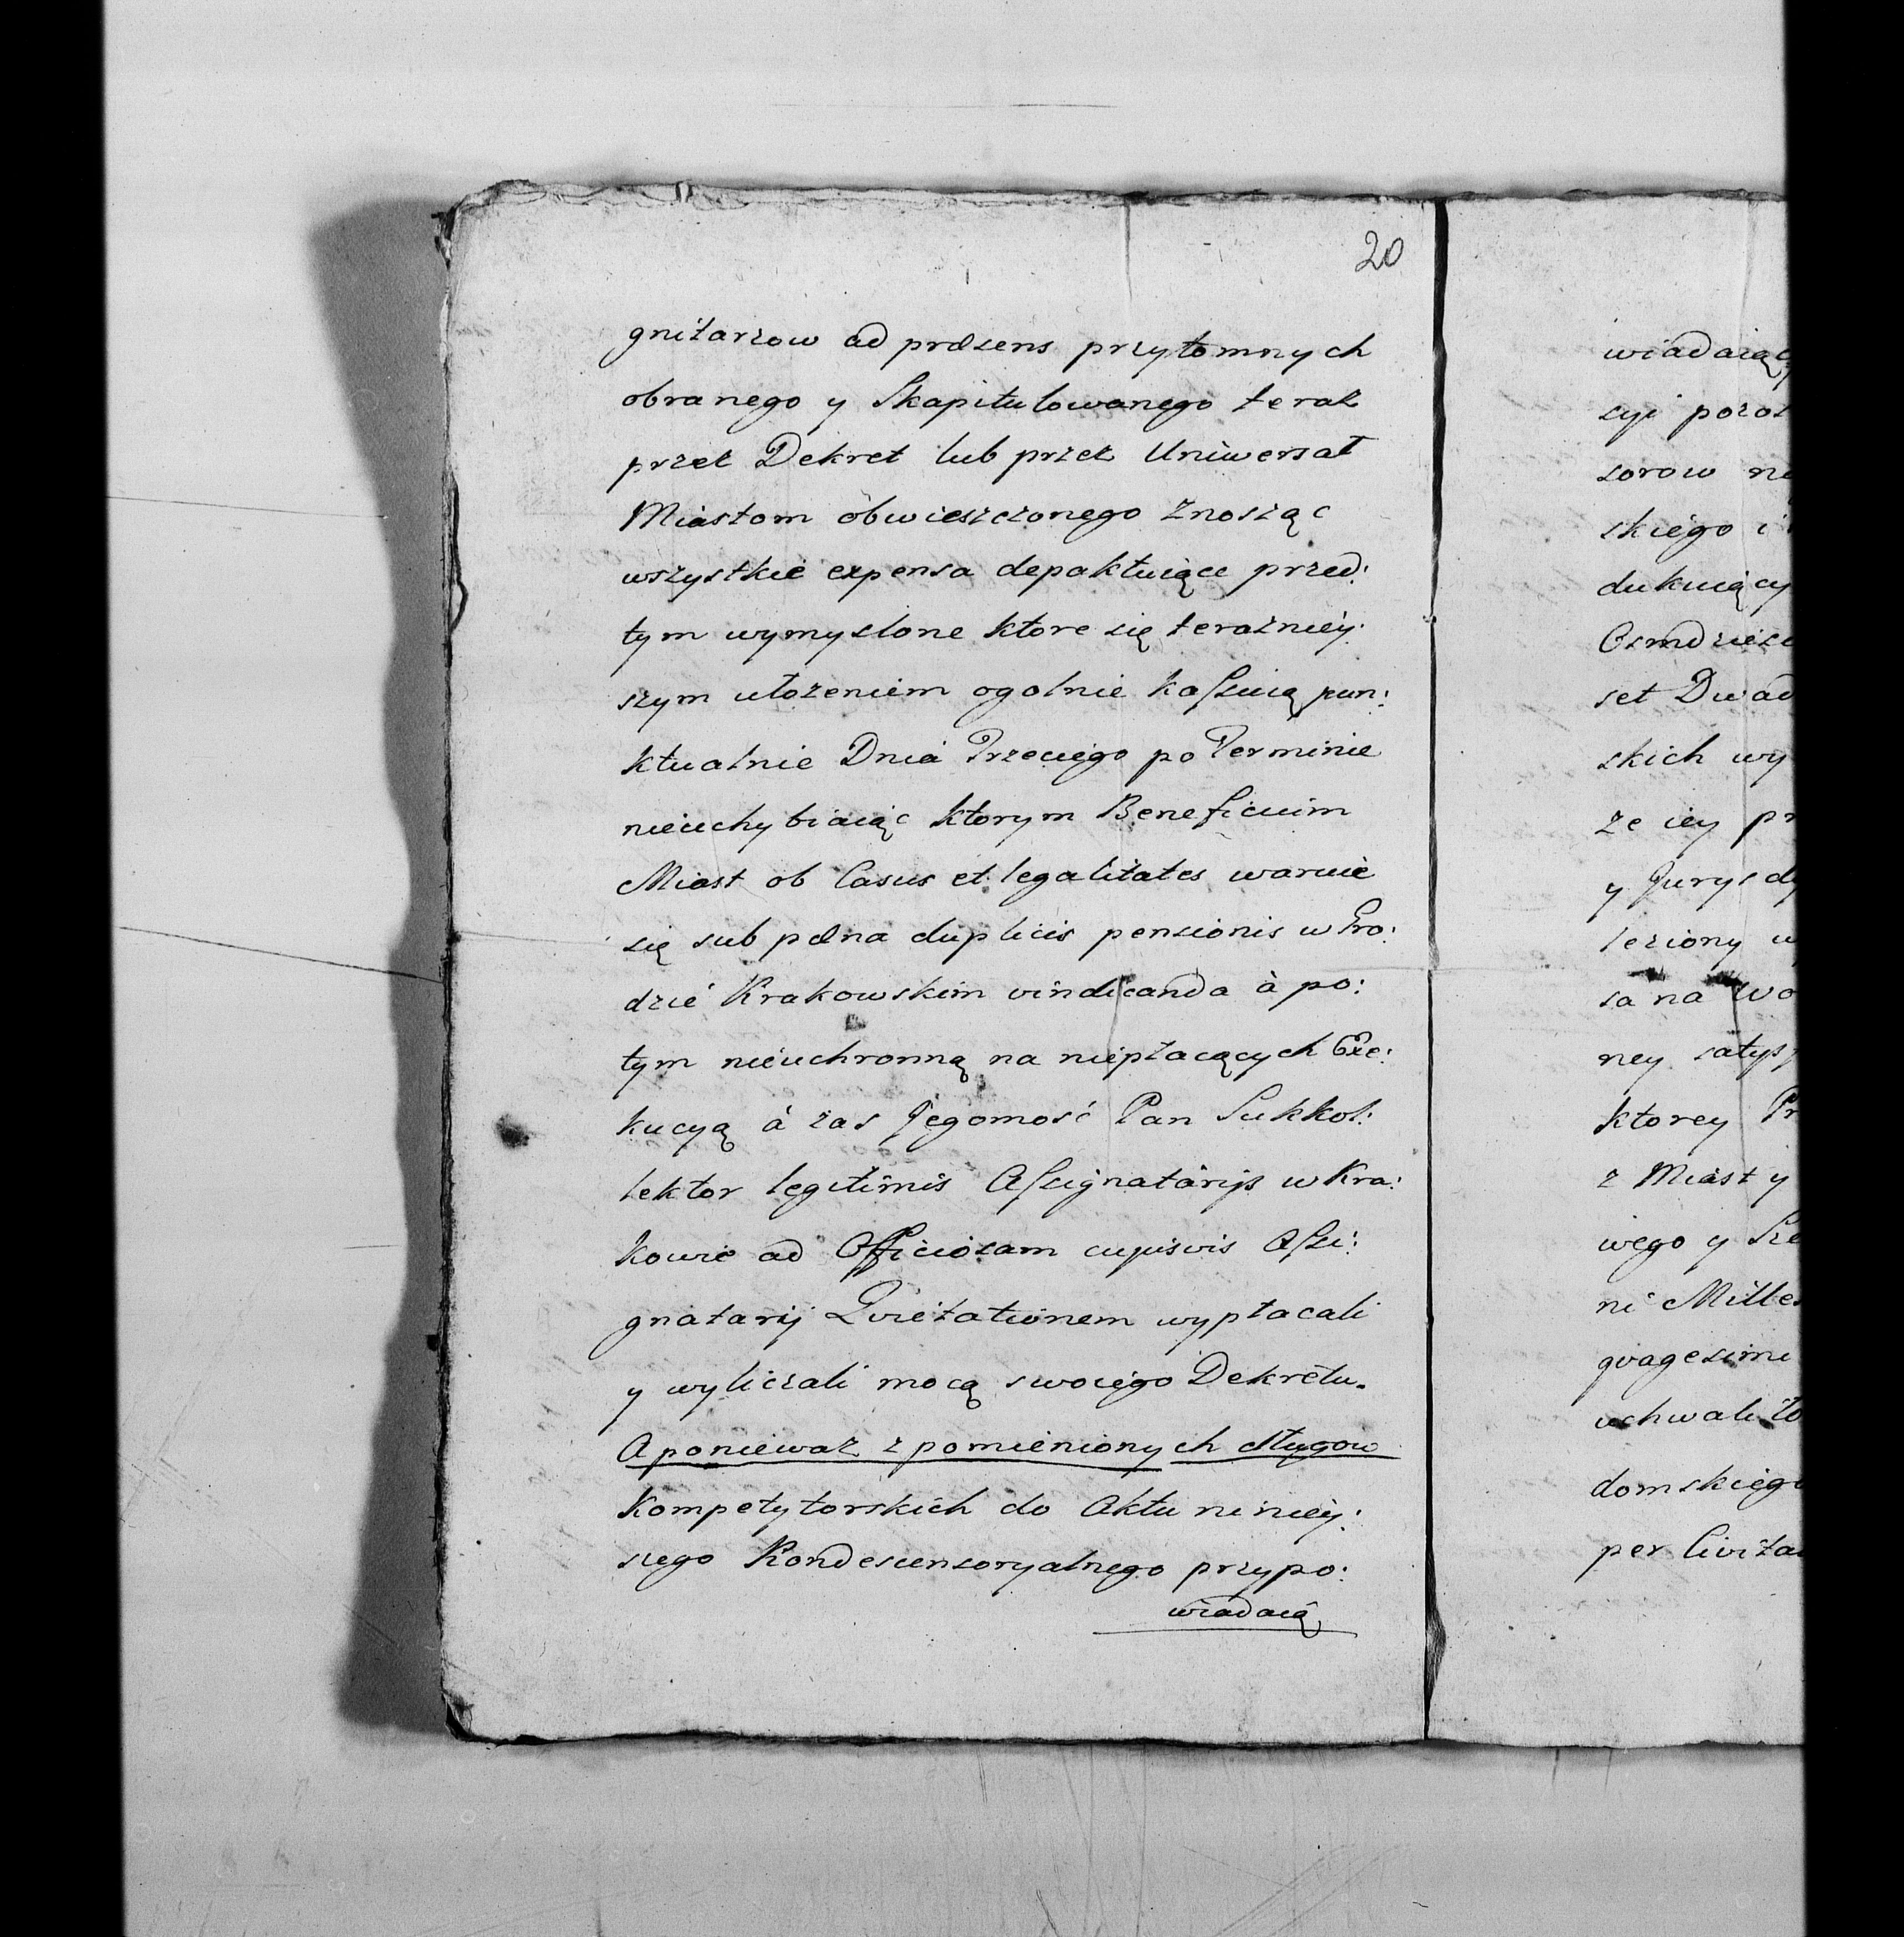 20
gnitarzow ad præsens przytomnych
obranego y Skapitulowanego teraz
przez Dekret lub przez Uniwersał
Miastom obwieszczonego znosząc
wszystkie expensa depaktuiące przed:
tym wymyslone ktore się teraznieÿ:
szym ułozeniem ogolnie kaſsuią pun:
ktualnie Dnia Trzeciego po Terminie
nieuchybiaiąc ktorym Beneficium
Miast ob Casus et legalitates waruie
się sub pæna duplicis pensionis w Gro:
dzie Krakowskim vindicanda à po:
tym nieuchronną na niepłacących Exe:
kucyą à zas Jegomość Pan Sukkol:
lektor legitimis Aſsignatarijs w Kra:
kowie ad Officiosam cujusvis Aſsi:
gnatarij Qvietationem wypłacali
y wyliczali mocą swoiego Dekretu.
A poniewaz z pomienionych długow
Kompetytorskich do Aktu ninieÿ:
szego Kondescensoryalnego przypo:
wiadaią
wiadaiący
cyi pozos
sorow
skiego i
dukuiący
Osmdziesi
set Dwad
skich wy
ze iey pr
y Jurysdy
leziony w
sa na Wo
ney satysf
ktorey Pr
z Miast y
wego y Sze
ni Milles
qvagesimi
uchwali to
domskiego
per Civita